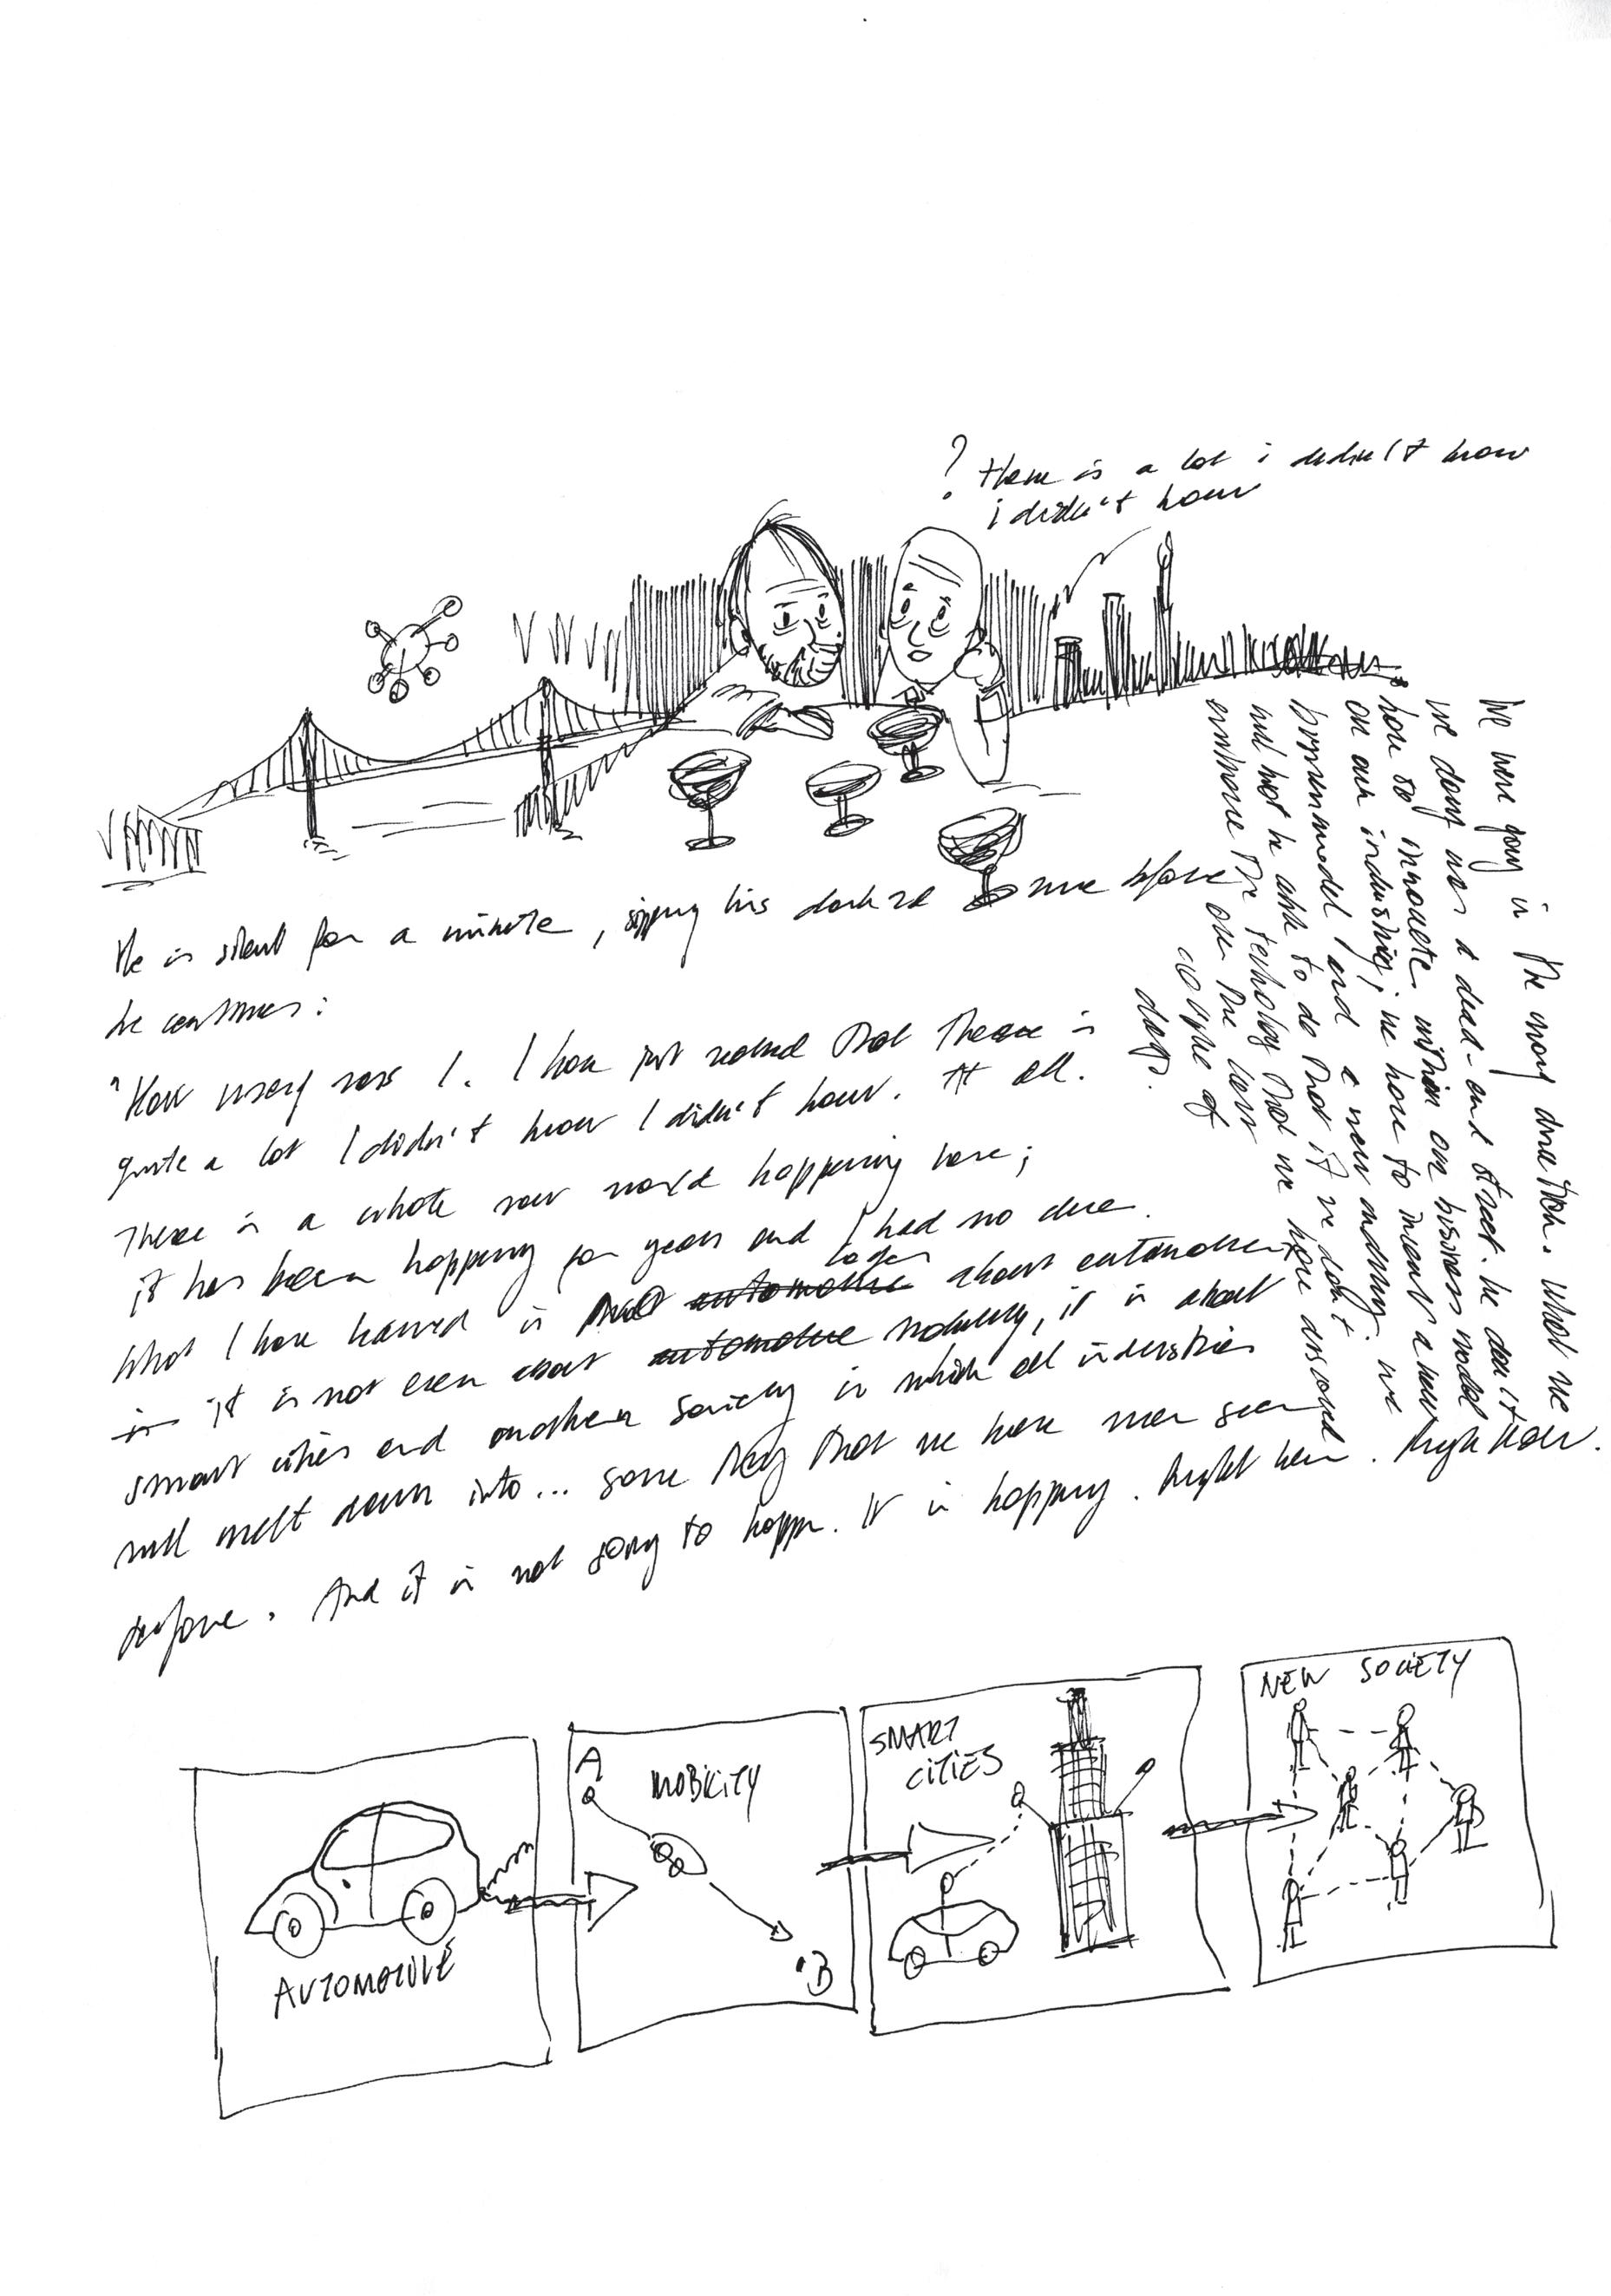 ? there is a lot i didn't know
i didn't know
He is silent for a minute, sipping his dark red wine before
he continues:
"How wrong was I. I have just realised that there is
quite a lot I didn't know I didn't know. At all.
There is a whole new world happening here;
it has been happening for years and I had no clue.
What I have learned is that automotive longer about automotive,
in it is not even about automotive mobility, it is about
smart cities and another society in which all industries
will melt down into... some thing that we have never seen
before. And it is not going to happen. It is happening. Right here. Right Now.
We were going in the wrong direction. What we
we doing was a dead-end street. We don't
have to innovate within our business model
or our industry; we have to invent a new
business model and a new industry. We
will not be able to do that if we don't
embrace the technology that we have discovered
over the last couple of
days.
AUTOMOTIVE
A
MOBILITY
B
SMART
CITIES
NEW SOCIETY